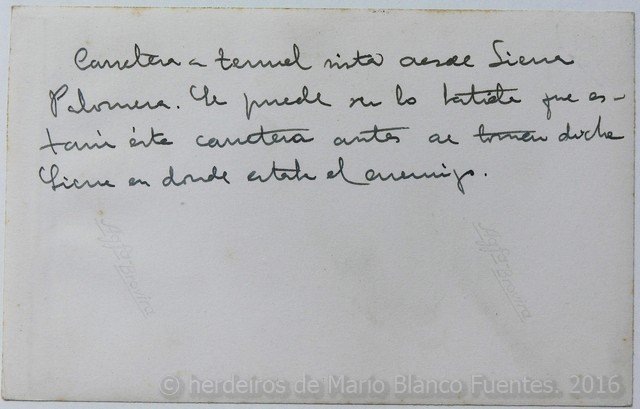 Carretera a teruel vista desde Sierra
Palomera. Se puede ver lo batida que es-
taria ésta carretera antes de tomar dicha
Sierra en donde estaba el enemigo.
Agfa Brovira
Agfa Brovira
© herdeiros de Mario Blanco Fuentes. 2016